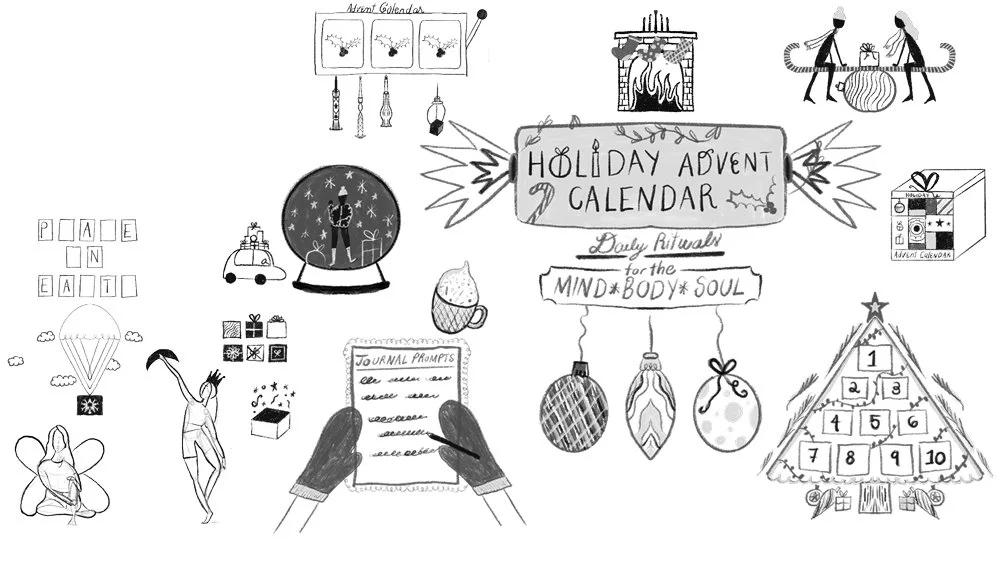 Advent Calendar
HOLIDAY ADVENT
CALENDAR
Daily Rituals
for the
MIND*BODY*SOUL
HOLIDAY
ADVENT CALENDAR
P A E
N
E A T
JOURNAL PROMPTS
1
2 3
4 5 6
7 8 9 10